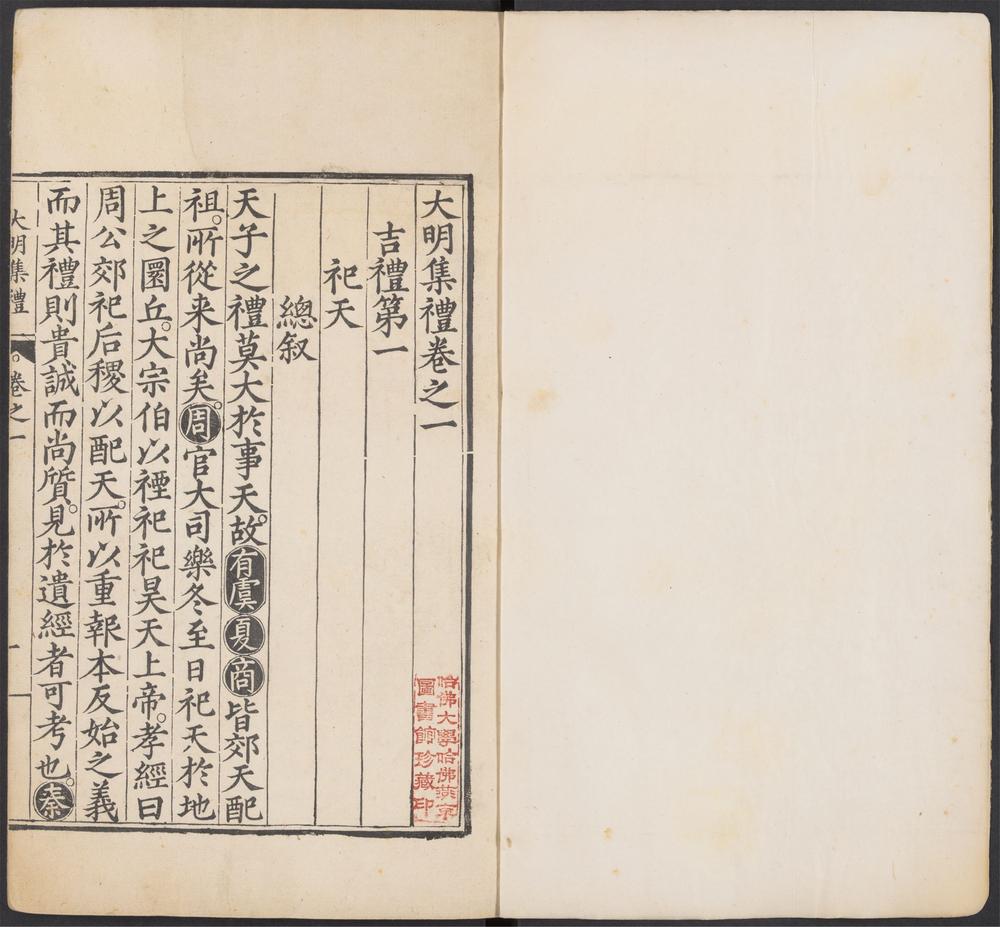 大明集禮卷之一
吉禮第一
祀天
總叙
天子之禮莫大於事天。故有虞夏商皆郊天配
祖。所從来尚矣。周官大司樂冬至日祀天於地
上之圜丘。大宗伯以禋祀祀昊天上帝。孝經曰
周公郊祀后稷以配天。所以重報本反始之義
而其禮則貴誠而尚質。見於遺經者可考也。秦
大明集禮 卷之一 一
哈佛大學哈佛燕京
圖書館珍藏印